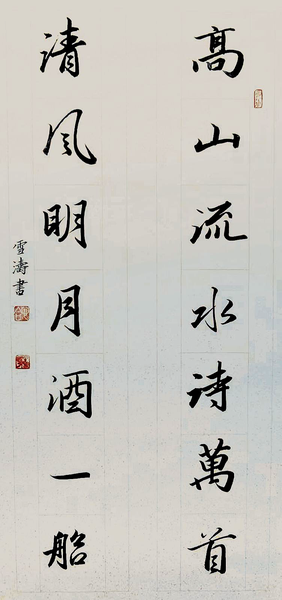 高山流水詩萬首
清風明月酒一船
雪濤書